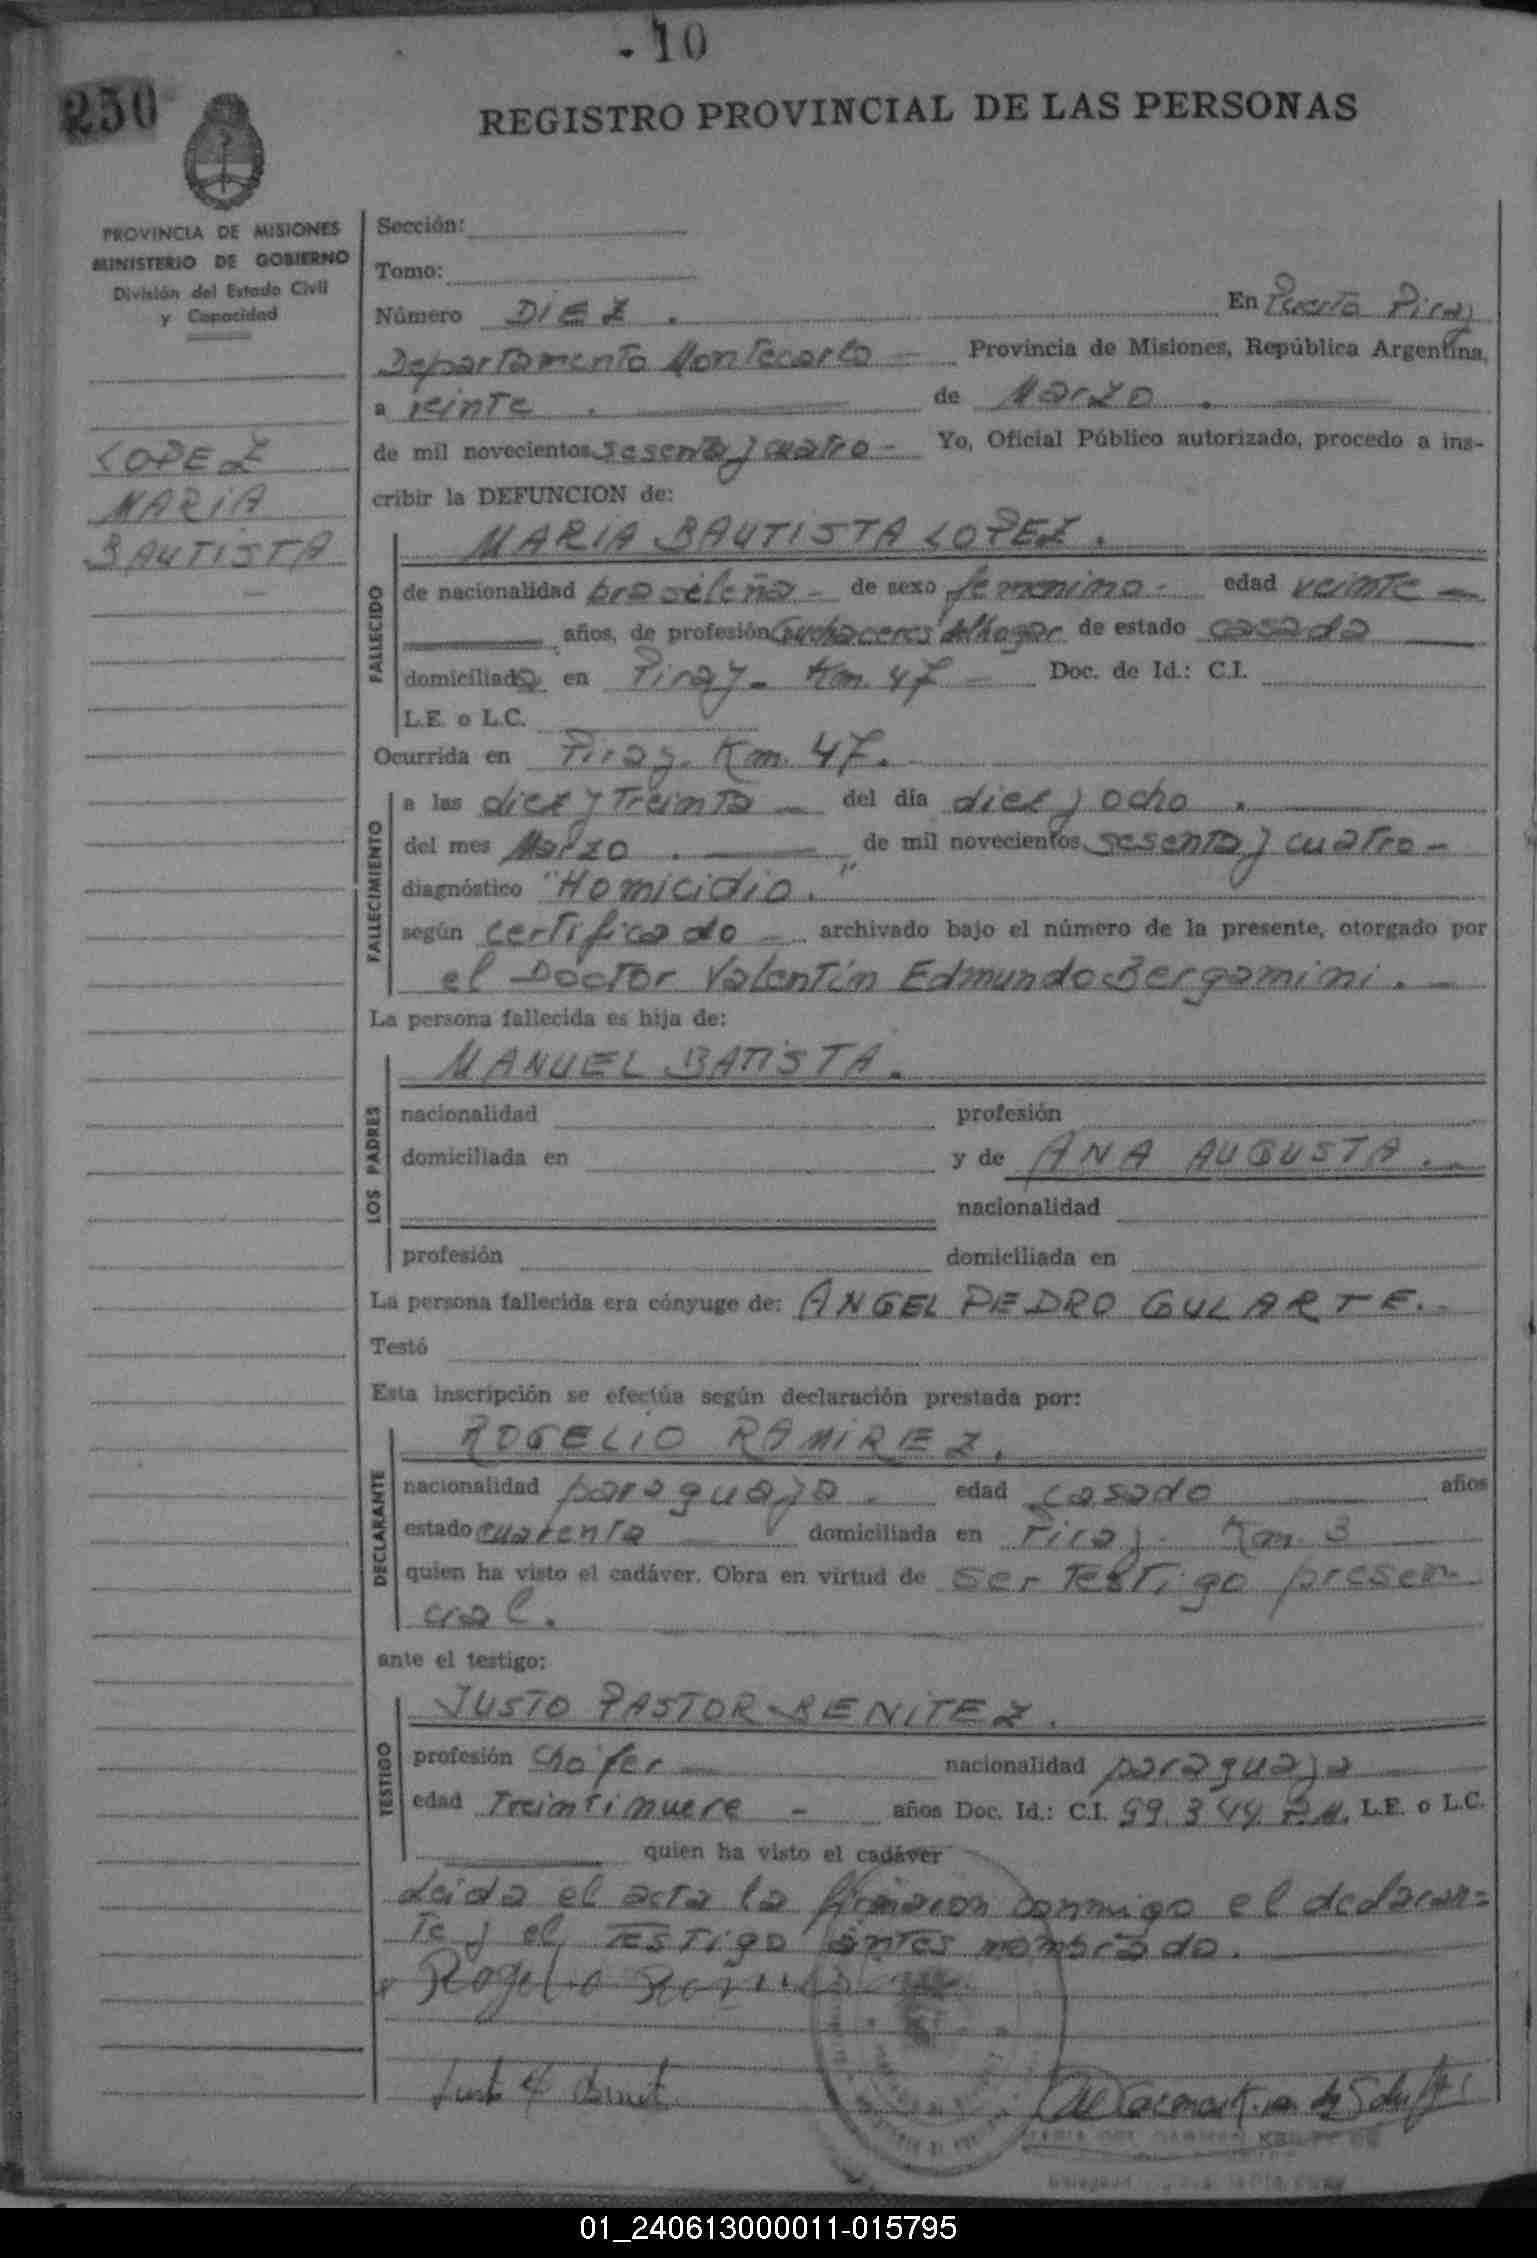 - 10
250
REGISTRO PROVINCIAL DE LAS PERSONAS
PROVINCIA DE MISIONES
MINISTERIO DE GOBIERNO
División del Estado Civil
y Capacidad
LOPEZ
MARIA
BAUTISTA
Sección:
Tomo:
Número DIEZ . En Puerto Piray
Departamento Montecarlo - Provincia de Misiones, República Argentina,
a veinte . de Marzo .
de mil novecientos sesenta y cuatro - Yo, Oficial Público autorizado, procedo a ins-
cribir la DEFUNCION de:
MARIA BAUTISTA LOPEZ .
FALLECIDO
de nacionalidad brasileña - de sexo femenino - edad veinte -
años, de profesión Quehaceres del hogar de estado casada
domiciliada en Piray - Km. 47 - Doc. de Id.: C.I.
L.E. o L.C.
Ocurrida en Piray. Km. 47.
FALLECIMIENTO
a las diez y treinta - del día diez y ocho .
del mes Marzo . de mil novecientos sesenta y cuatro -
diagnóstico "Homicidio."
según certificado - archivado bajo el número de la presente, otorgado por
el Doctor Valentín Edmundo Bergamini . -
La persona fallecida es hija de:
LOS PADRES
MANUEL BATISTA .
nacionalidad profesión
domiciliada en y de ANA AUGUSTA . -
nacionalidad
profesión domiciliada en
La persona fallecida era cónyuge de: ANGEL PEDRO GULARTE. -
Testó
Esta inscripción se efectúa según declaración prestada por:
DECLARANTE
ROGELIO RAMIREZ .
nacionalidad paraguaya . edad casado años
estado cuarenta - domiciliada en Piray. Km. 3
quien ha visto el cadáver. Obra en virtud de ser testigo presen-
cial .
ante el testigo:
TESTIGO
JUSTO PASTOR BENITEZ .
profesión chofer nacionalidad paraguaya
edad Treintinueve - años Doc. Id.: C.I. 99.344. P.M. L.E. o L.C.
quien ha visto el cadáver
Leída el acta la firmaron conmigo el declaran=
te y el testigo antes nombrado .
Rogelio
01_240613000011-015795